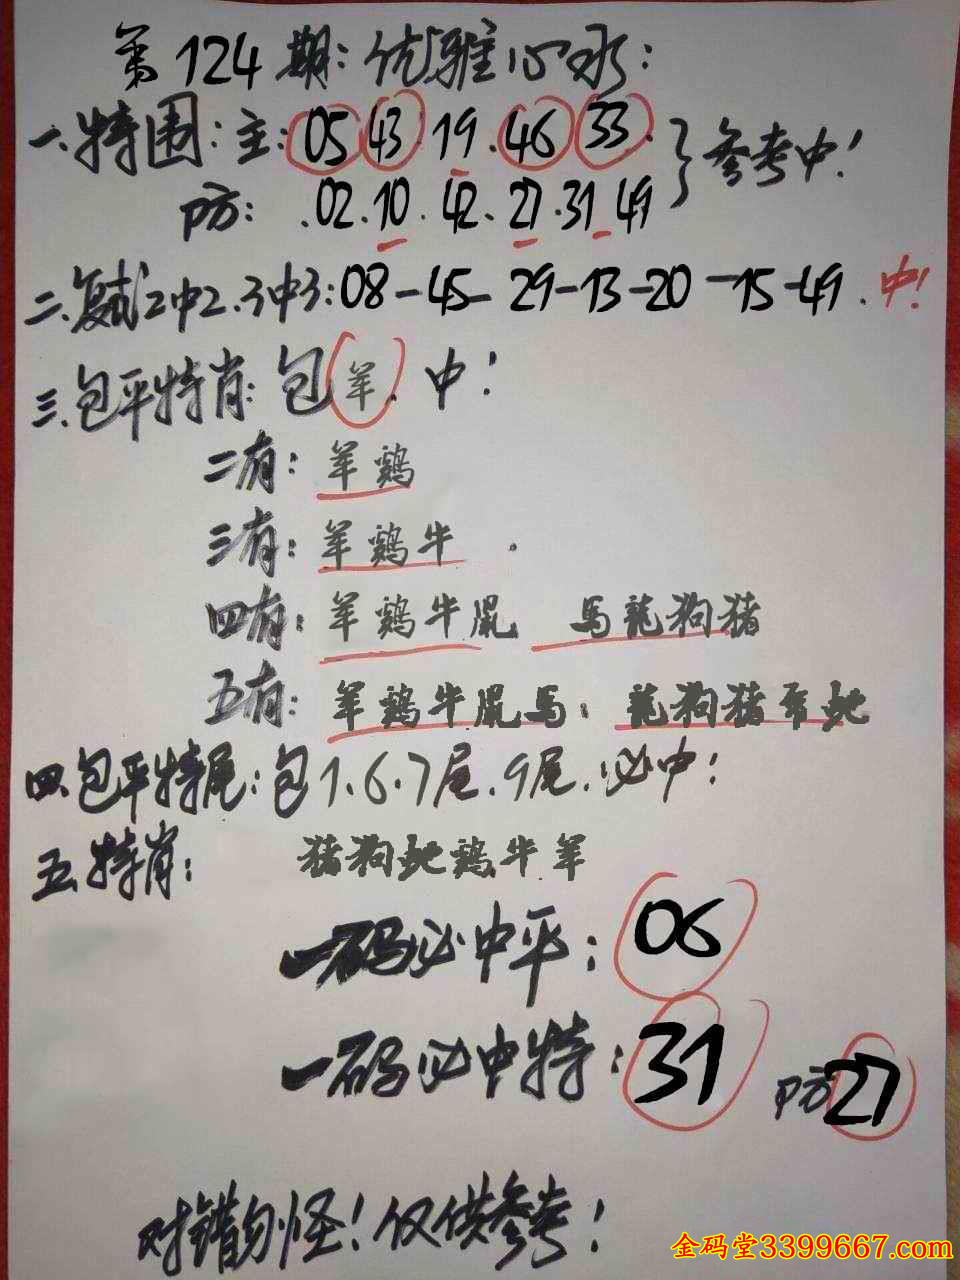 第124期：优雅心水：
一、特围：主：05 43·19·46 33· }参考中！
防：·02·10·42·27·31 49
二、复试2中2、3中3：08-45-29-13-20-15-49. 中！
三、包平特肖：包羊、中！
二有：羊鸡
三有：羊鸡牛
四有：羊鸡牛鼠 马龍狗猪
五有：羊鸡牛鼠马：龍狗猪兔蛇
四、包平特尾：包1、6·7尾、9尾、必中！
五、特肖： 猪狗蛇鸡牛羊
一码必中平：06
一码必中特：31 防27
对错勿怪！仅供参考！
金码堂3399667.com